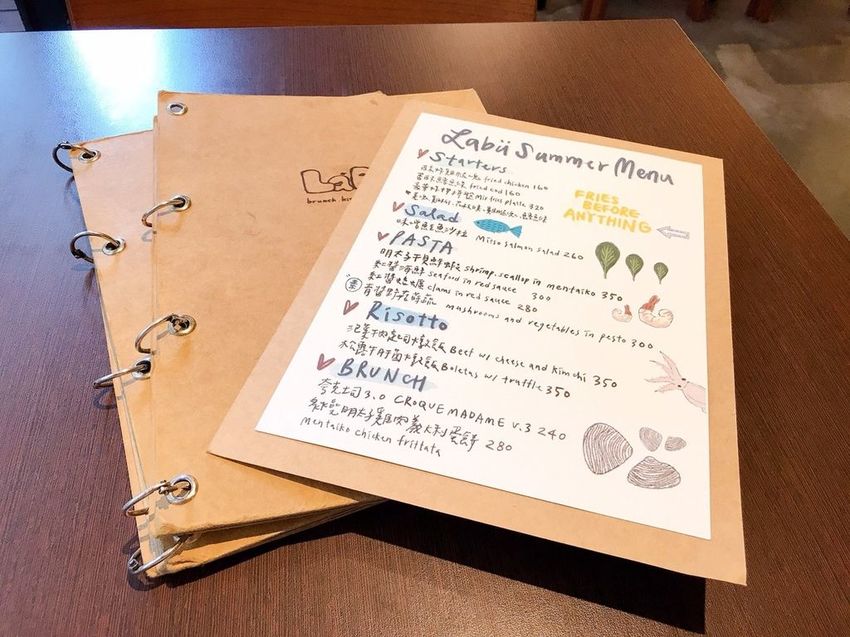 La
brunch.ki
Labü Summer Menu
Starters
fried chicken 160
fried cod 160
Mix fries platta 320
FRIES
BEFORE
ANYTHING
Salad
味噌鮭魚沙拉 Miso salmon salad 260
PASTA
明太子干貝鮮蝦 shrimp, scallop in mentaiko 350
紅醬海鮮 seafood in red sauce 300
紅醬蛤蠣 clams in red sauce 280
素 青醬野菇時蔬 mushrooms and vegetables in pesto 300
Risotto
泡菜牛肉起司燉飯 Beef w/ cheese and kimchi 350
松露牛肝菌燉飯 Boletus w/ truffle 350
BRUNCH
夸克土司 3.0 CROQUE MADAME v.3 240
明太子雞肉義大利蛋餅 280
Mentaiko chicken frittata